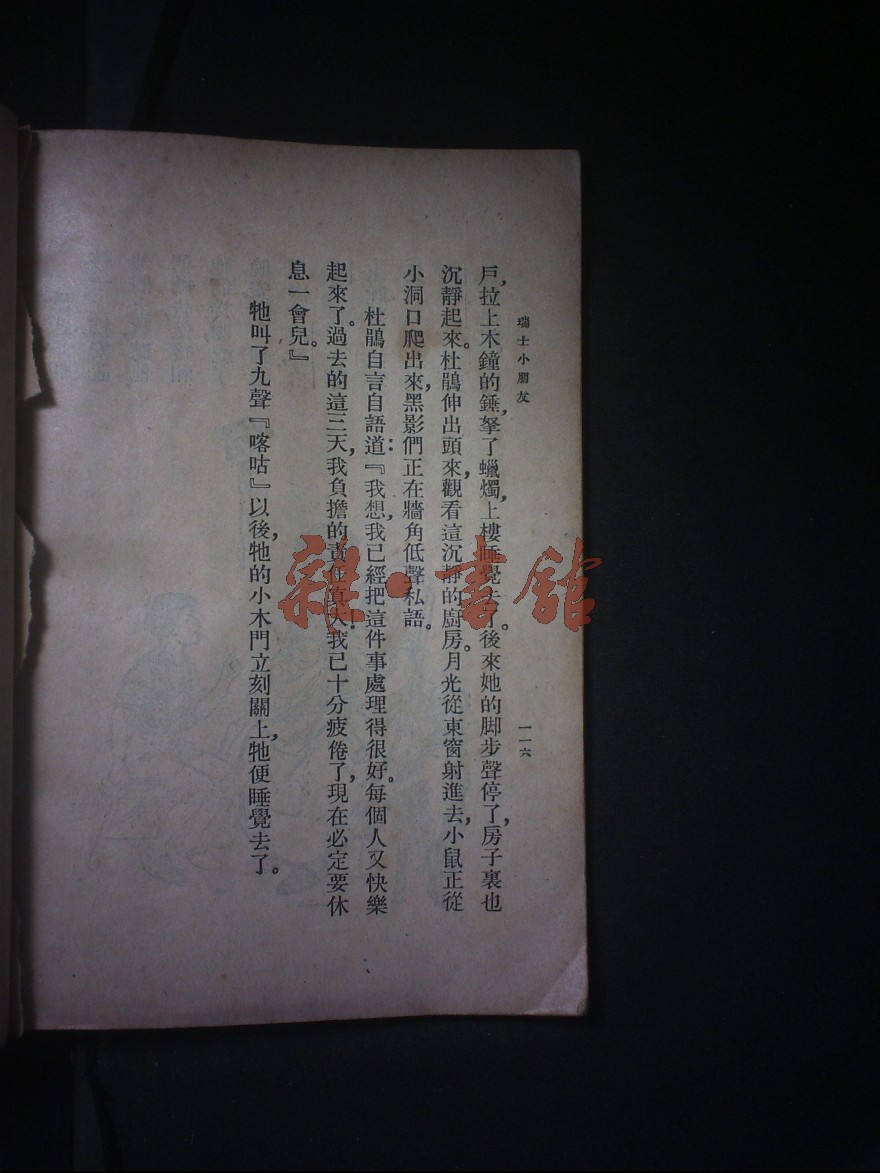 瑞士小朋友
一一六
戶，拉上木鐘的錘，拏了蠟燭，上樓睡覺去了。後來她的脚步聲停了，房子裏也
沉靜起來。杜鵑伸出頭來，觀看這沉靜的廚房。月光從東窗射進去，小鼠正從
小洞口爬出來，黑影們正在牆角低聲私語。
杜鵑自言自語道：『我想，我已經把這件事處理得很好。每個人又快樂
起來了。過去的這三天，我負擔的責任真大！我已十分疲倦了，現在必定要休
息一會兒。』
牠叫了九聲『喀咕』以後，牠的小木門立刻關上，牠便睡覺去了。
雜·書館